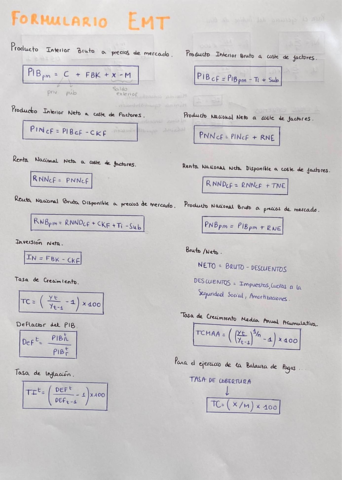 FORMULARIO EMT
Producto Interior Bruto a precios de mercado.
PIBpm = C + FBK + X - M
Producto Interior Bruto a coste de factores.
PIBcf = PIBpm - Ti + Sub
Producto Interior Neto a coste de Factores.
PINcf = PIBcf - CKF
Producto Nacional Neto a coste de factores.
PNNcf = PINcf + RNE
Renta Nacional Neta a coste de factores.
RNNcf = PNNcf
Renta Nacional Neta Disponible a coste de factores.
RNNDcf = RNNcf + TNE
Renta Nacional Bruta Disponible a precios de mercado.
RNBpm = RNNDcf + CKF + Ti - Sub
Producto Nacional Bruto a precios de mercado.
PNBpm = PIBpm + RNE
Inversión Neta.
IN = FBK - CKF
Bruto/Neto.
NETO = BRUTO - DESCUENTOS
DESCUENTOS = Impuestos, Cuotas a la
Seguridad Social, Amortizaciones
Tasa de Crecimiento.
TC = (Yt / Yt-1 - 1) x 100
Tasa de Crecimiento Media Anual Acumulativa.
Deflactor del PIB
Tasa de Inflación.
Para el ejercicio de la Balanza de Pagos
TASA DE COBERTURA
TC = (X/M) x 100